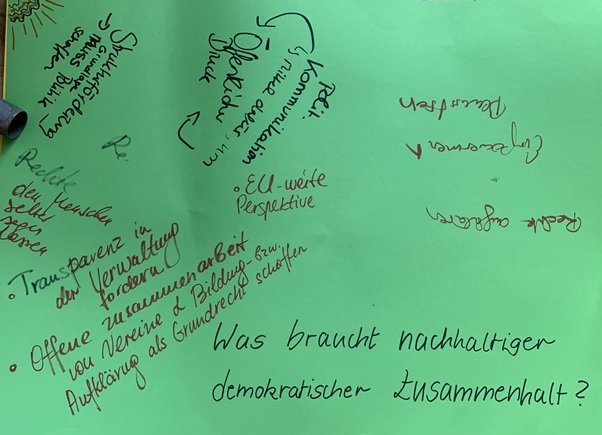 Was braucht nachhaltiger
demokratischer Zusammenhalt?
Strukturförderung
→ Muss Politik
Grundlage
schaffen
Polit.
Kommunikation
Öffentlicher
Druck
um
• EU-weite
Perspektive
Re.
Rechte
den Menschen
selbst
sein
lassen
• Transparenz in
der Verwaltung
fordern
• Offene Zusammenarbeit
von Vereine & Bildung- bzw.
Aufklärung als Grundrecht schaffen
Empowerment
Rechte aufklären